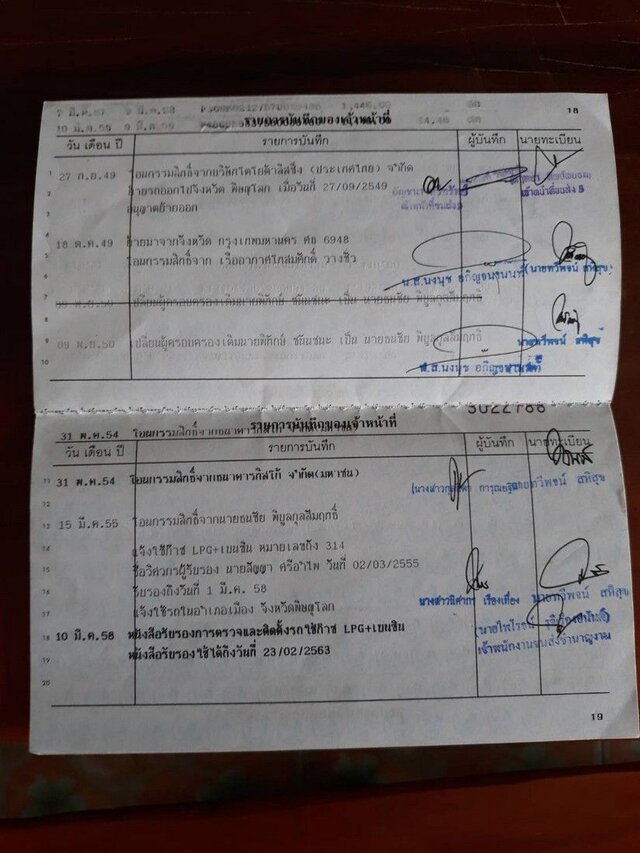 รายการบันทึกของเจ้าหน้าที่
18
วัน เดือน ปี รายการบันทึก ผู้บันทึก นายทะเบียน
27 ก.อ.49 โอนกรรมสิทธิ์จากบริษัทโตโยต้าลีสซิ่ง (ประเทศไทย) จำกัด
ย้ายรถออกไปจังหวัด พิษณุโลก เมื่อวันที่ 27/09/2549
อนุญาตย้ายออก
18 ต.ค.49 ย้ายมาจากจังหวัด กรุงเทพมหานคร ศธ 6948
โอนกรรมสิทธิ์จาก เรืออากาศโทสมศักดิ์ วางชิว
(นายทวีพจน์ สหิสุข
09 พ.ย.50 เปลี่ยนผู้ครอบครองเดิมนายพิทักษ์ ชนินชนะ เป็น นายธนชัย พิบูลกุลสัมฤทธิ์
09 พ.ย.50 เปลี่ยนผู้ครอบครองเดิมนายพิทักษ์ ชนินชนะ เป็น นายธนชัย พิบูลกุลสัมฤทธิ์
นายทวีพจน์ สหิสุข
3022788
31 พ.ค.54
รายการบันทึกของเจ้าหน้าที่
วัน เดือน ปี รายการบันทึก ผู้บันทึก นายทะเบียน
31 พ.ค.54 โอนกรรมสิทธิ์จากธนาคารทิสโก้ จำกัด(มหาชน)
นายทวีพจน์ สหิสุข
15 มี.ค.55 โอนกรรมสิทธิ์จากนายธนชัย พิบูลกุลสัมฤทธิ์
แจ้งใช้ก๊าซ LPG+เบนซิน หมายเลขถัง 314
ชื่อวิศวกรผู้รับรอง นายสัญญา ศรีอำไพ วันที่ 02/03/2555
รับรองถึงวันที่ 1 มี.ค. 58
นางสาวนิศากร เรืองเที่ยง นายทวีพจน์ สหิสุข
แจ้งใช้รถในอำเภอเมือง จังหวัดพิษณุโลก
10 มี.ค.58 หนังสือรับรองการตรวจและติดตั้งรถใช้ก๊าซ LPG+เบนซิน
หนังสือรับรองใช้ได้ถึงวันที่ 23/02/2563
เจ้าพนักงานขนส่งชำนาญงาน
19